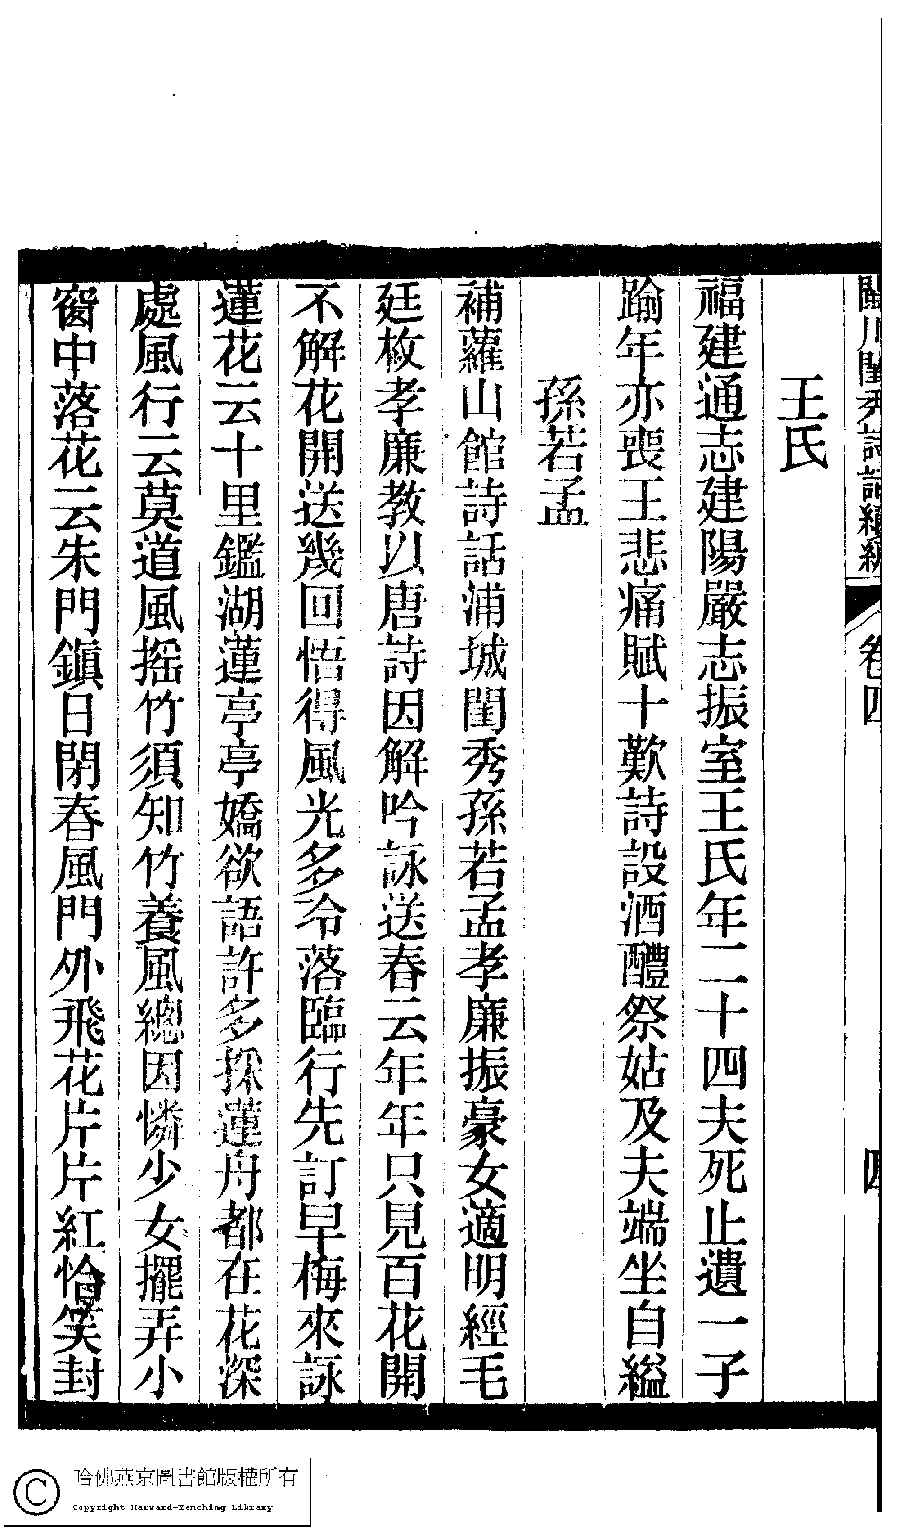 閩川閨秀詩話續編 卷四 四
王氏
福建通志建陽嚴志振室王氏年二十四夫死止遺一子
踰年亦喪王悲痛賦十歎詩設酒醴祭姑及夫端坐自縊
孫若孟
補蘿山館詩話浦城閨秀孫若孟孝廉振豪女適明經毛
廷枚孝廉教以唐詩因解吟詠送春云年年只見百花開
不解花開送幾回悟得風光多冷落臨行先訂早梅來詠
蓮花云十里鑑湖蓮亭亭嬌欲語許多採蓮舟都在花深
處風行云莫道風搖竹須知竹養風總因憐少女擺弄小
窗中落花云朱門鎮日閉春風門外飛花片片紅恰笑封
哈佛燕京圖書館版權所有
Copyright Harvard-Yenching Library